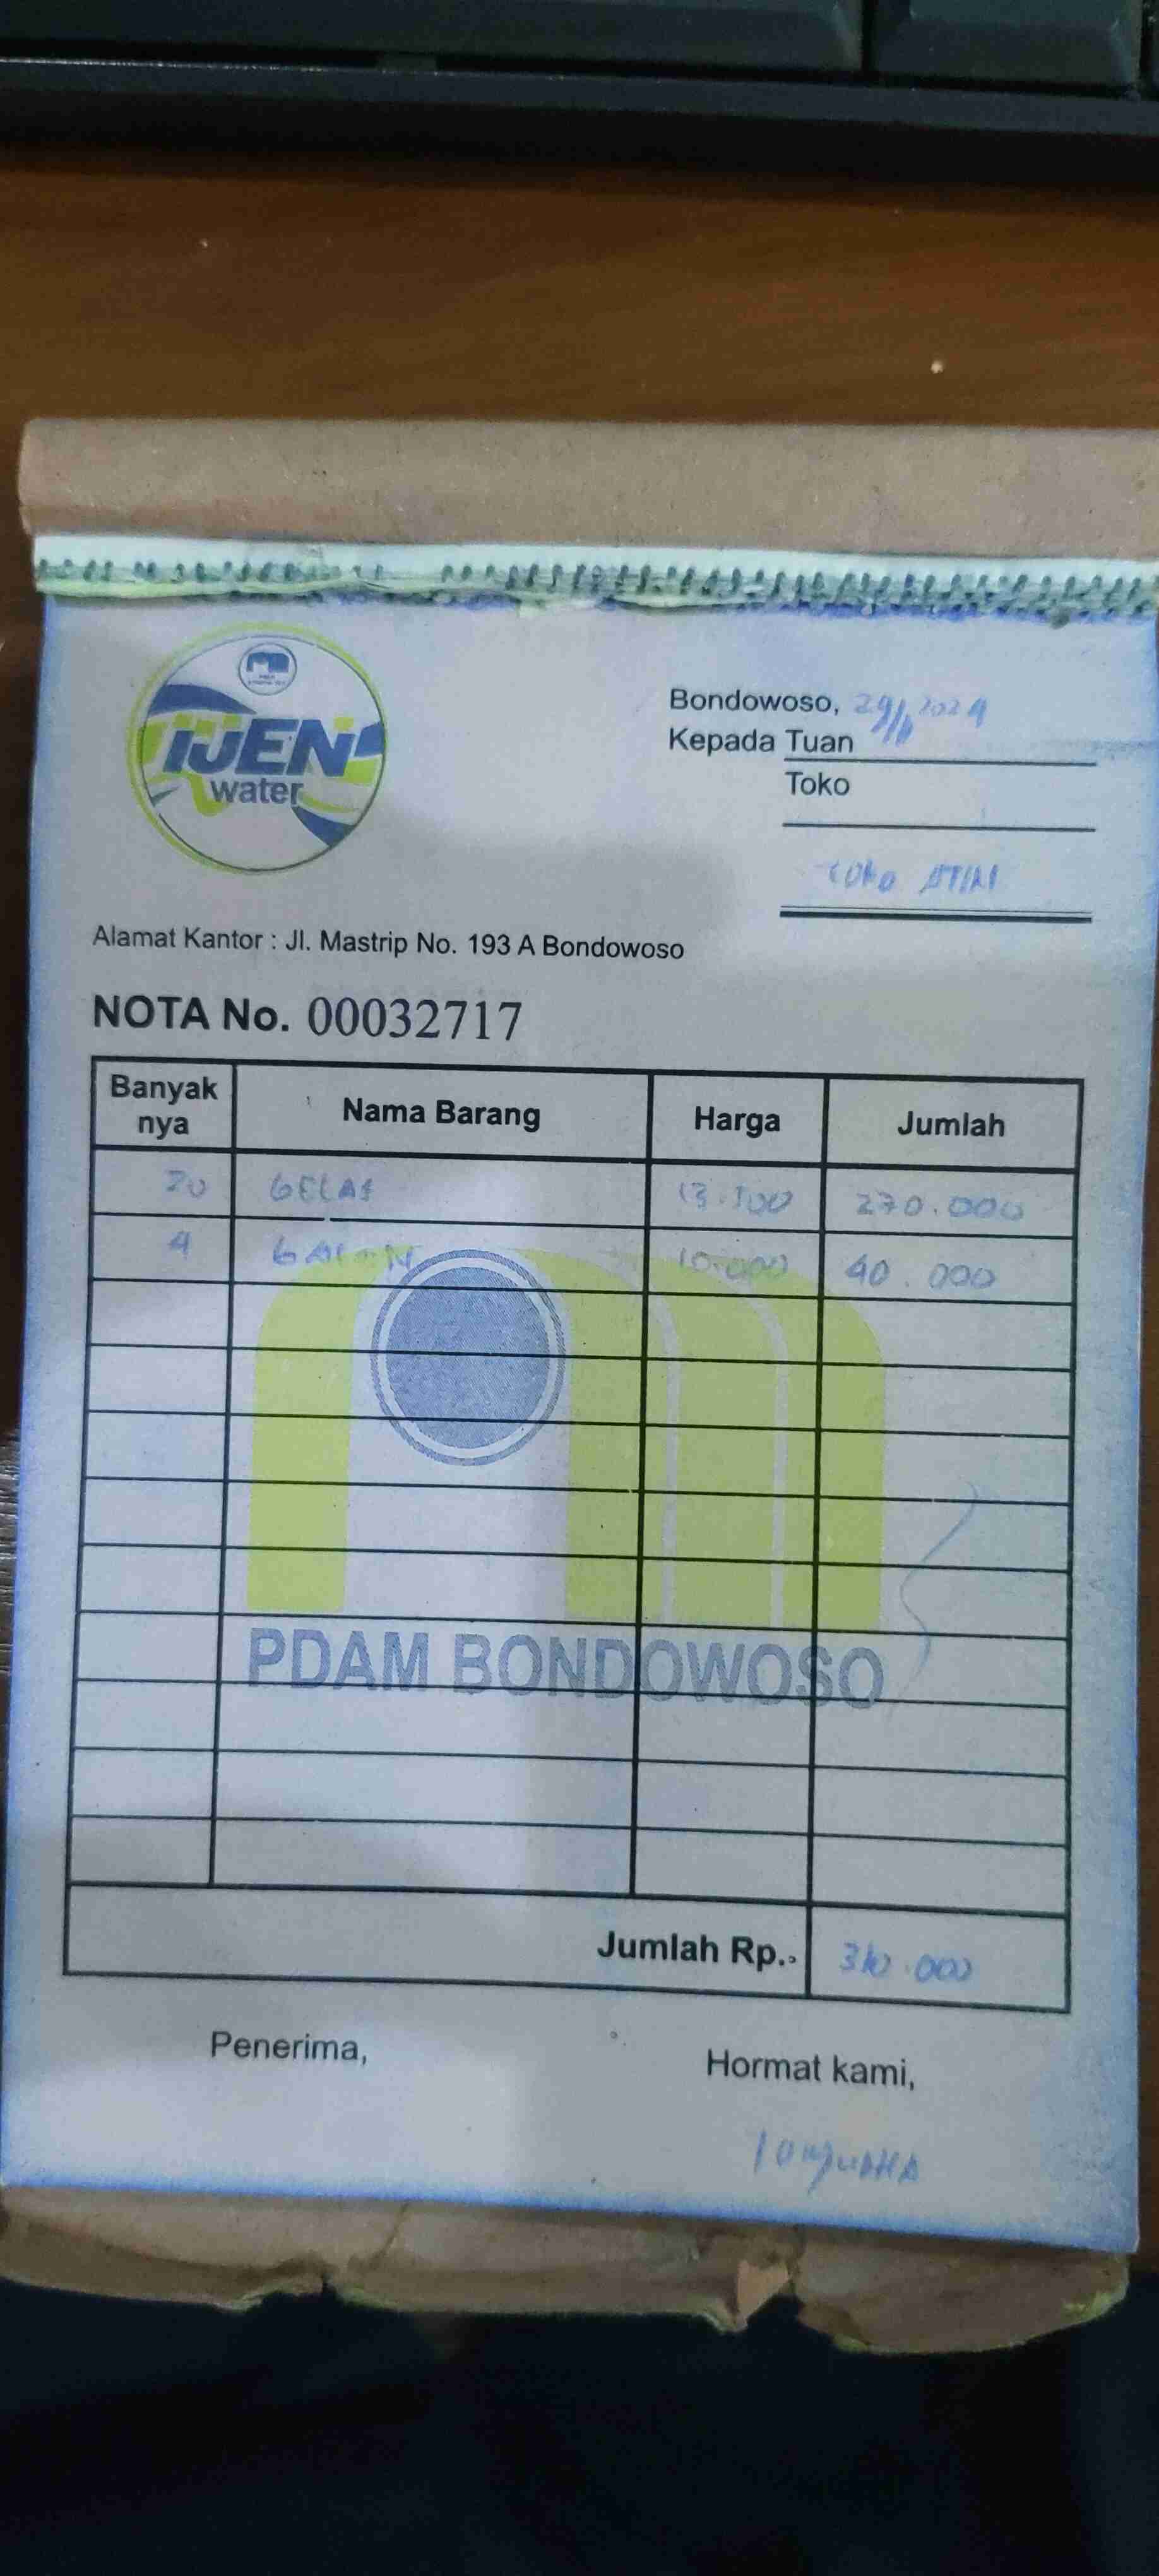 IJEN
water
Bondowoso, 2024
Kepada Tuan
Toko
TOKO
Alamat Kantor : Jl. Mastrip No. 193 A Bondowoso
NOTA No. 00032717
Banyak nya Nama Barang Harga Jumlah
20 GELAS 13.500 270.000
4 GALON 10.000 40.000
PDAM BONDOWOSO
Jumlah Rp.. 310.000
Penerima, Hormat kami,